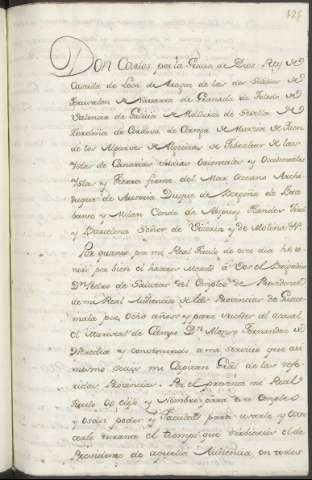 Don Carlos por la Gracia de Dios Rey de
Castilla de Leon de Aragon de las dos Sicilias de
Jerusalen de Navarra de Granada de Toledo de
Valencia de Galicia de Mallorca de Sevilla de
Cerdeña de Cordova de Corcega de Murcia de Jaen
de los Algarves de Algecira de Gibraltar de las
Islas de Canarias Indias Orientales y Occidentales
Islas y Tierra firme del Mar Occeano Archi
duque de Austria Duque de Borgoña de Bra
bante y Milan Conde de Abspurg Flandes Tirol
y Barcelona Señor de Vizcaya y de Molina &a
Por quanto por mi Real Titulo de este dia he te
nido por bien el hacer merced á vos el Brigadier
Dn. Pedro de Salazar del Empleo de Presidente
de mi Real Audiencia de las Provincias de Guate
mala por ocho años y para suceder al actual
el Mariscal de Campo Dn. Alonso Fernandez de
Heredia y conviniendo a mi servicio que assi
mismo seais mi Capitan Gral de las refe
ridas Provincias. Por el presente mi Real
Titulo os elijo y nombro para este Empleo
y os doy poder y facultad para usarle y exer
cerle durante el tiempo que sirviereis el de
Presidente de aquella Audiencia en todos